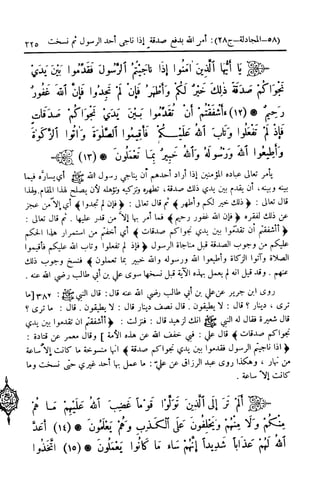 (٥٨ - المجادلة - ج٢٨): أمر الله بدفع صدقة إذا ناجى أحد الرسول ثم نسخت ٣٢٥
يَا أَيُّهَا الَّذِينَ آمَنُوا إِذَا نَاجَيْتُمُ الرَّسُولَ فَقَدِّمُوا بَيْنَ يَدَيْ
نَجْوَاكُمْ صَدَقَةً ذَلِكَ خَيْرٌ لَكُمْ وَأَطْهَرُ فَإِنْ لَمْ تَجِدُوا فَإِنَّ اللهَ غَفُورٌ
رَحِيمٌ (١٢) ءَأَشْفَقْتُمْ أَنْ تُقَدِّمُوا بَيْنَ يَدَيْ نَجْوَاكُمْ صَدَقَاتٍ
فَإِذْ لَمْ تَفْعَلُوا وَتَابَ اللهُ عَلَيْكُمْ فَأَقِيمُوا الصَّلَوٰةَ وَآتُوا الزَّكَوٰةَ
وَأَطِيعُوا اللهَ وَرَسُولَهُ وَاللهُ خَبِيرٌ بِمَا تَعْمَلُونَ (١٣)
يأمر تعالى عباده المؤمنين إذا أراد أحدهم أن يناجي رسول الله ﷺ أي يسارّه فيما
بينه وبينه، أن يقدم بين يدي ذلك صدقة، تطهره وتزكيه وتؤهله لأن يصلح لهذا المقام. ولهذا
قال تعالى : ﴿ ذلك خير لكم وأطهر ﴾ ثم قال تعالى : ﴿ فإن لم تجدوا ﴾ أي إلا من عجز
عن ذلك لفقره ﴿ فإن الله غفور رحيم ﴾ فما أمر بها إلا من قدر عليها . ثم قال تعالى :
﴿ أأشفقتم أن تقدموا بين يدي نجواكم صدقات ﴾ أي أخفتم من استمرار هذا الحكم
عليكم من وجوب الصدقة قبل مناجاة الرسول ﴿ فإذ لم تفعلوا وتاب الله عليكم فأقيموا
الصلاة وآتوا الزكاة وأطيعوا الله ورسوله والله خبير بما تعملون ﴾ فنسخ وجوب ذلك
عنهم . وقد قيل انه لم يعمل بهذه الآية قبل نسخها سوى علي بن أبي طالب رضي الله عنه .
روى ابن جرير عن علي بن أبي طالب رضي الله عنه قال: قال النبي ﷺ : ٣٨٧ [ ما
ترى ، دينار ؟ قال : لا يطيقون . قال نصف دينار قال : لا يطيقون . قال : ما ترى ؟
قال شعيرة فقال له النبي ﷺ انك لزهيد قال : فنزلت : ﴿ أأشفقتم ان تقدموا بين يدي
نجواكم صدقات ﴾ قال علي : فبي خفف الله عن هذه الأمة ] وقال معمر عن قتادة :
﴿ إذا ناجيتم الرسول فقدموا بين يدي نجواكم صدقة ﴾ انها منسوخة ما كانت إلا ساعة
من نهار ، وهكذا روى عبد الرزاق عن علي : ما عمل بها أحد غيري حتى نسخت وما
كانت إلا ساعة .
أَلَمْ تَرَ إِلَى الَّذِينَ تَوَلَّوْا قَوْماً غَضِبَ اللهُ عَلَيْهِمْ مَا هُمْ
مِنْكُمْ وَلَا مِنْهُمْ وَيَحْلِفُونَ عَلَى الْكَذِبِ وَهُمْ يَعْلَمُونَ (١٤) أَعَدَّ
اللهُ لَهُمْ عَذَاباً شَدِيداً إِنَّهُمْ سَاءَ مَا كَانُوا يَعْمَلُونَ (١٥) اتَّخَذُوا